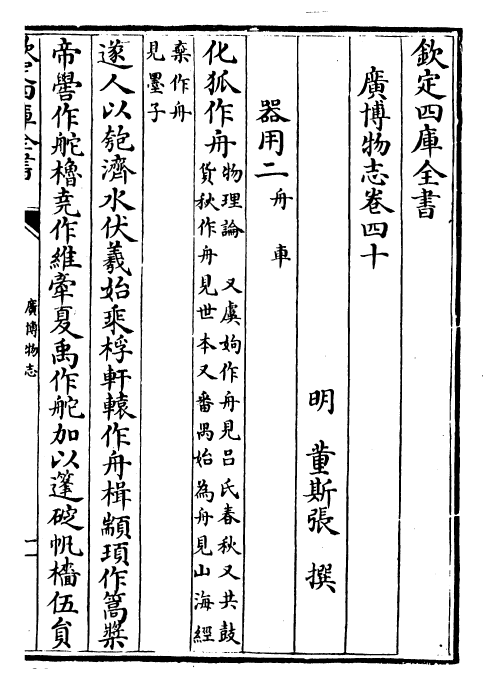 欽定四庫全書
廣博物志卷四十
明 董斯張 撰
器用二 舟 車
化狐作舟 物理論 又虞姁作舟見吕氏春秋又共鼓
貨狄作舟見世本又番禺始為舟見山海經
棄作舟
見墨子
遂人以匏濟水伏羲始乘桴軒轅作舟楫顓頊作篙槳
帝嚳作舵櫓堯作維牽夏禹作舵加以篷碇帆檣伍員
欽定四庫全書
廣博物志
一